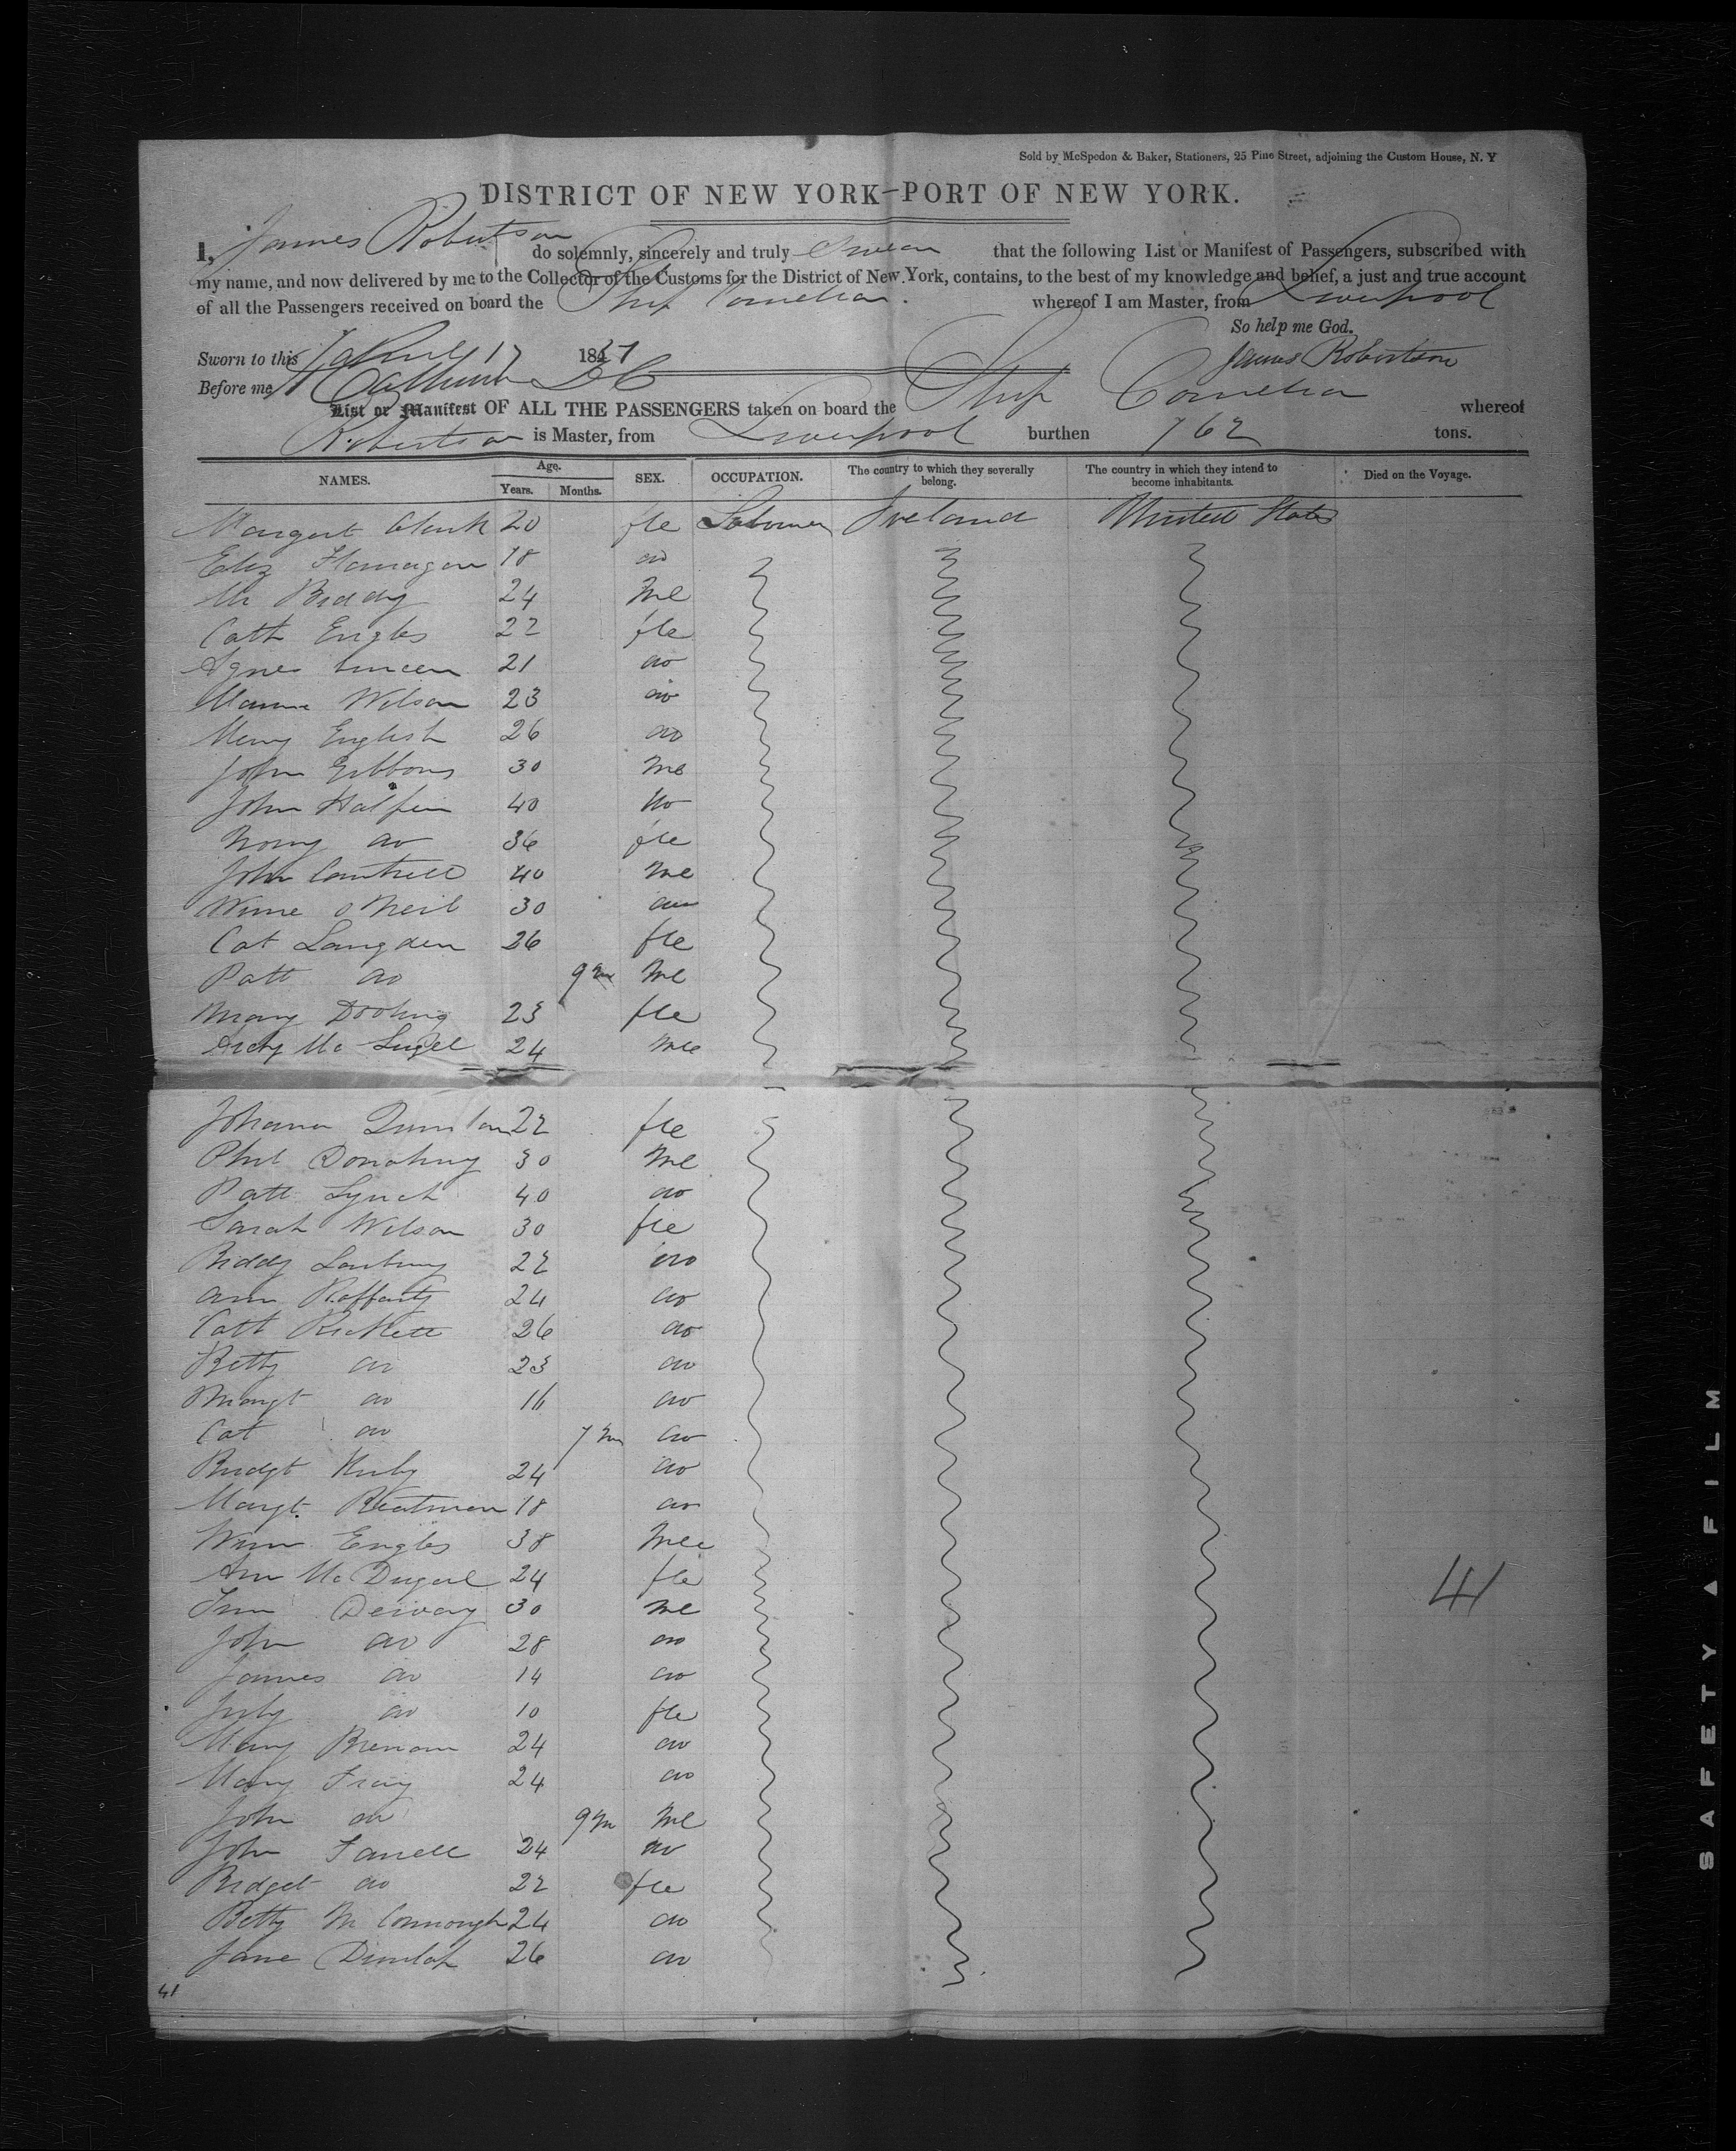 Sold by McSpedon & Baker, Stationers, 25 Pine Street, adjoining the Custom House, N. Y
DISTRICT OF NEW YORK—PORT OF NEW YORK.
I, James Robertson do solemnly, sincerely and truly Swear that the following List or Manifest of Passengers, subscribed with
my name, and now delivered by me to the Collector of the Customs for the District of New York, contains, to the best of my knowledge and belief, a just and true account
of all the Passengers received on board the Ship Cornelian. whereof I am Master, from Liverpool
So help me God.
Sworn to this 17 18 James Robertson
Before me
List or Manifest OF ALL THE PASSENGERS taken on board the Ship Cornelian whereof
Robertson is Master, from Liverpool burthen 762 tons.
NAMES. Age. Years. Months. SEX. OCCUPATION. The country to which they severally belong. The country in which they intend to become inhabitants. Died on the Voyage.
Margert 20 fle Labourer Ireland United States
Eliz Flannagan 18 do
Mr Biddy 24 Me
Cath Engles 22 fle
Agnes 21 do
Wilson 23 do
Mary English 26 do
John Gibbons 30 Me
John Halfin 40 do
do 36 fle
John Cantrell 40 Me
O Neil 30 do
Cat Langden 26 fle
Patt do 9 m Me
Mary Dooling 23 fle
24 Me
Johanna Quinlan 22 fle
Phil Donohuy 30 Me
Patt Lynch 40 do
Sarah Wilson 30 fle
Biddy 22 do
Ann Rafferty 24 do
Catt Rickett 26 do
Betty do 23 do
Margt do 16 do
Cat do 7 m do
Bridgt 24 do
Margt. 18 do
Wm Engles 38 Me
Ann Mc Dugal 24 fle
30 Me
John do 28 do
James do 14 do
July do 10 fle
Mary Brenan 24 do
Mary 24 do
John do 9 m Me
John Farrell 24 do
Bridget do 22 fle
Betty 24 do
Jane Dunlap 26 do
41
41
SAFETY ▲ FILM